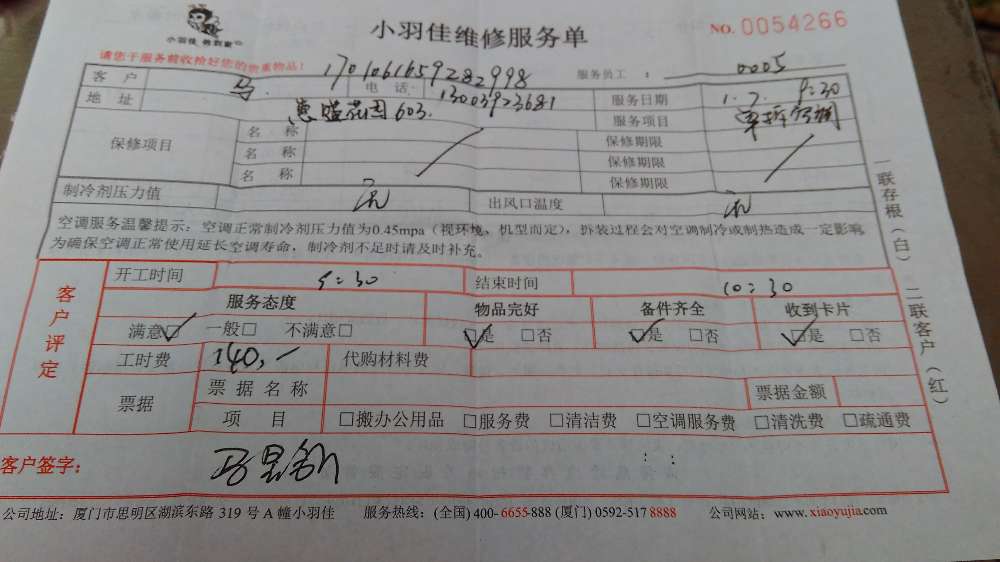 小羽佳 教到家
小羽佳维修服务单
NO. 0054266
请您于服务前收拾好您的贵重物品!
1701061659282998
服务员工: 0005
客户 马 电话 13003923681
服务日期 1.7. 9:30
地址 惠盛花园 603.
服务项目 单拆空调
保修项目
名称 保修期限
名称 保修期限
名称 保修期限
制冷剂压力值 出风口温度
空调服务温馨提示:空调正常制冷剂压力值为0.45mpa(视环境、机型而定),拆装过程会对空调制冷或制热造成一定影响
为确保空调正常使用延长空调寿命,制冷剂不足时请及时补充。
一联存根(白)二联客户(红)
客户评定
开工时间 9:30 结束时间 10:30
服务态度 物品完好 备件齐全 收到卡片
满意☑ 一般□ 不满意□ ☑是 □否 ☑是 □否 ☑是 □否
工时费 140,- 代购材料费
票据
票据名称 票据金额
项目 □搬办公用品 □服务费 □清洁费 □空调服务费 □清洗费 □疏通费
客户签字: : :
公司地址:厦门市思明区湖滨东路 319 号 A 幢小羽佳 服务热线:(全国) 400- 6655-888 (厦门) 0592-517 8888 公司网站:www. xiaoyujia.com